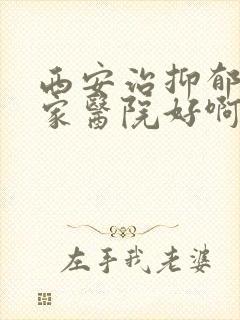 西安治抑郁
家醫院好啊
左手我老婆